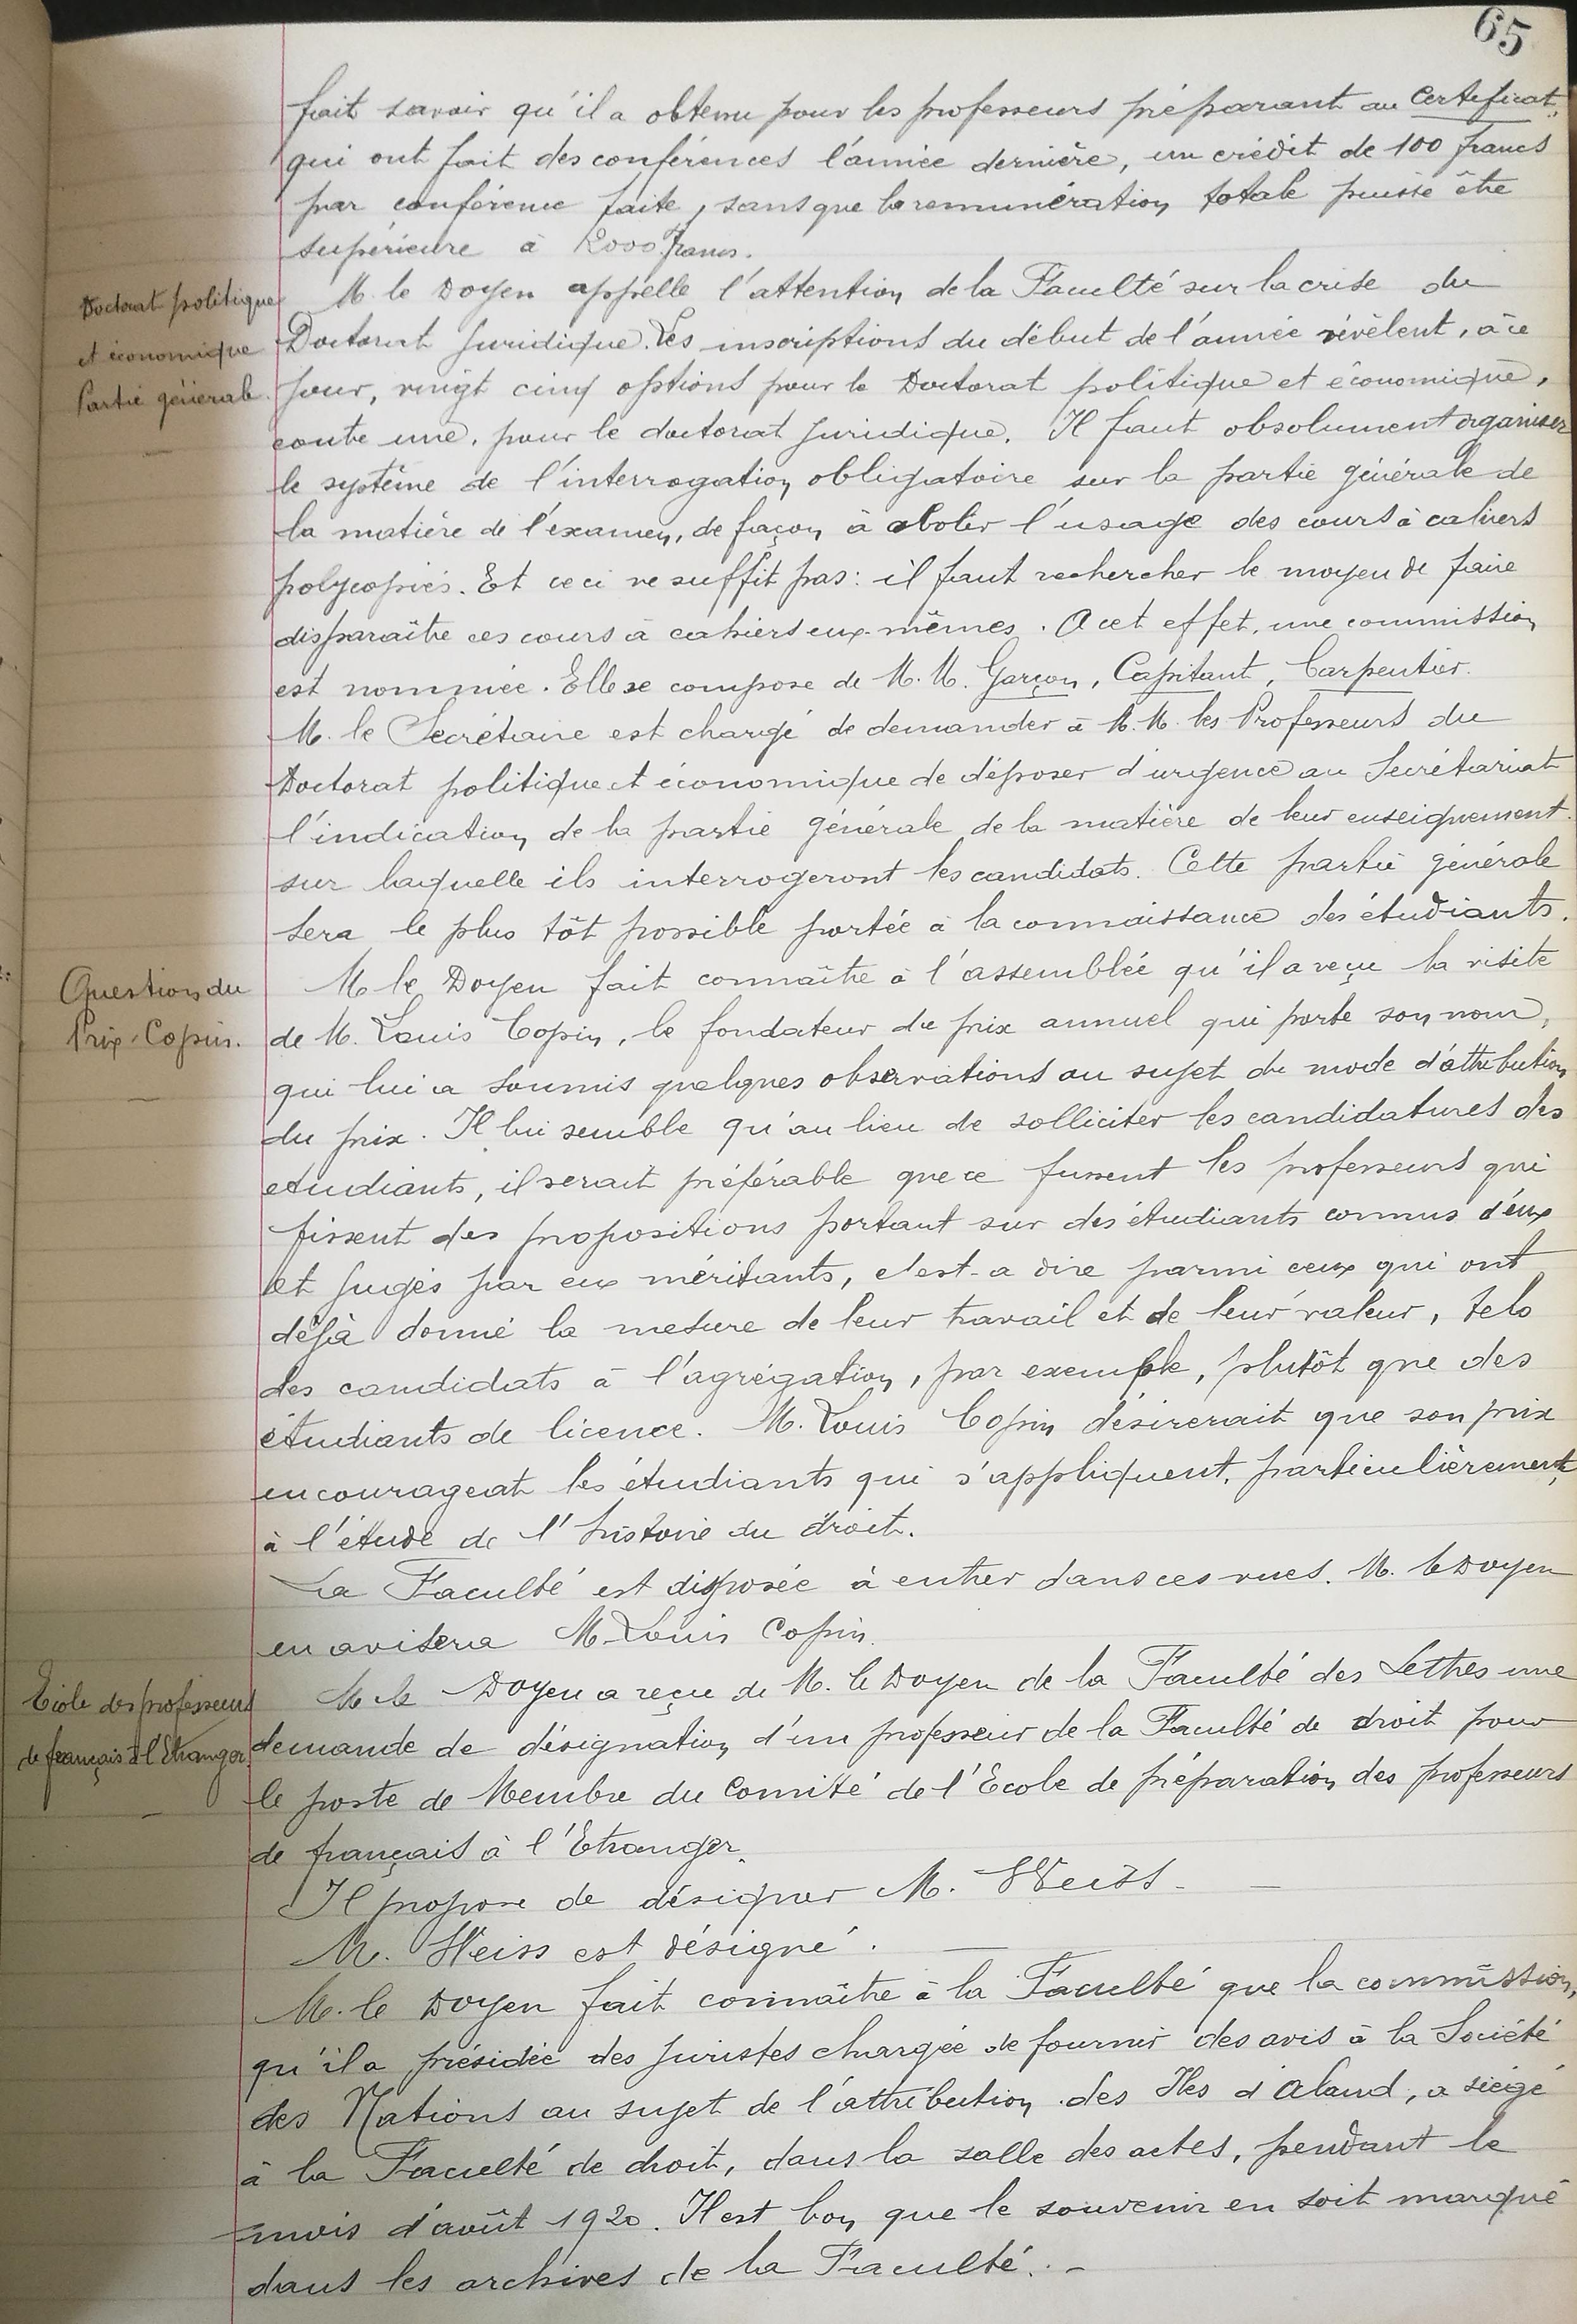 65
fait savoir qu'il a obtenu pour les professeurs préparant au Certificat,
qui ont fait des conférences l'année dernière, un crédit de 100 francs
par conférence faite, sans que la remunération totale puisse être
supérieure à 2000 francs.
Doctorat politique
et économique
Partie générale.
M. le Doyen appelle l'attention de la Faculté sur la crise du
Doctorat Juridique. Les inscriptions du début de l'année révèlent, à ce
jour, vingt cinq options pour le Doctorat politique et économique,
contre une, pour le doctorat Juridique. Il faut absolument organiser
le système de l'interrogation obligatoire sur la partie générale de
la matière de l'examen, de façon à abolir l'usage des cours à cahiers
polycopiés. Et ceci ne suffit pas : il faut rechercher le moyen de faire
disparaître ces cours à cahiers eux-mêmes. A cet effet, une commission
est nommée. Elle se compose de M.M. Garçon, Capitant, Carpentier.
M. le Secrétaire est chargé de demander à M.M. les Professeurs du
Doctorat politique et économique de déposer d'urgence au Secrétariat
l'indication de la partie générale de la matière de leur enseignement.
sur laquelle ils interrogeront les candidats. Cette partie générale
sera le plus tôt possible portée à la connaissance des étudiants.
Question du
Prix Copin.
M le Doyen fait connaître à l'assemblée qu'il a reçu la visite
de M. Louis Copin, le fondateur du prix annuel qui porte son nom,
qui lui a soumis quelques observations au sujet du mode d'attribution
du prix. Il lui semble qu'au lieu de solliciter les candidatures des
etudiants, il serait préférable que ce fussent les professeurs qui
fissent des propositions portant sur des étudiants connus d'eux
et jugés par eux méritants, c'est-a dire parmi ceux qui ont
déjà donné la mesure de leur travail et de leur valeur, tels
des candidats à l'agrégation, par exemple, plutôt que des
étudiants de licence. M. Louis Copin désirerait que son prix
encourageat les étudiants qui s'appliquent, particulièrement,
à l'étude de l'histoire du droit.
La Faculté est disposée à entrer dans ces vues. M. le Doyen
en avisera M. Louis Copin.
Ecole des professeurs
de français à l'Etranger.
M le Doyen a reçu de M. le Doyen de la Faculté des Lettres une
demande de désignation d'un professeur de la Faculté de droit pour
le poste de Membre du Comité de l'Ecole de préparation des professeurs
de français à l'Etranger.
Il propose de désigner M. Weiss. —
M. Weiss est désigné. —
M. le Doyen fait connaître à la Faculté que la commission,
qu'il a présidée des juristes chargée de fournir des avis à la Société
des Nations au sujet de l'attribution des Iles d'Aland, a siégé
à la Faculté de droit, dans la salle des actes, pendant le
mois d'août 1920. Il est bon que le souvenir en soit marqué
dans les archives de la Faculté. -